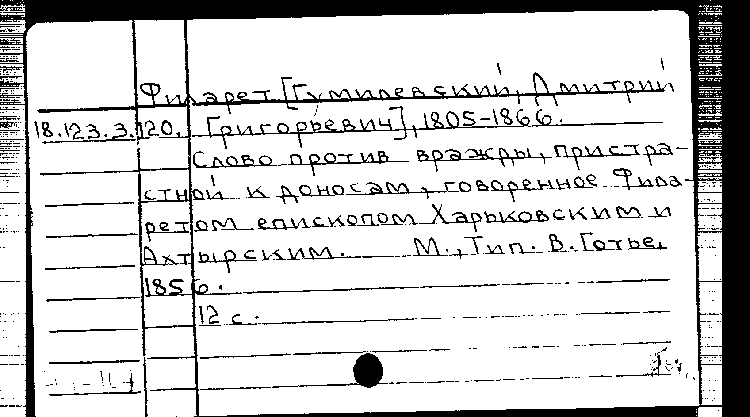 Филарет [Гумилевский, Дмитрий
18.123.3.120. Григорьевич], 1805-1866.
Слово против вражды, пристра-
стной к доносам, говоренное Фила-
ретом епископом Харьковским и
Ахтырским. М., Тип. В. Готье,
1856.
12 с.